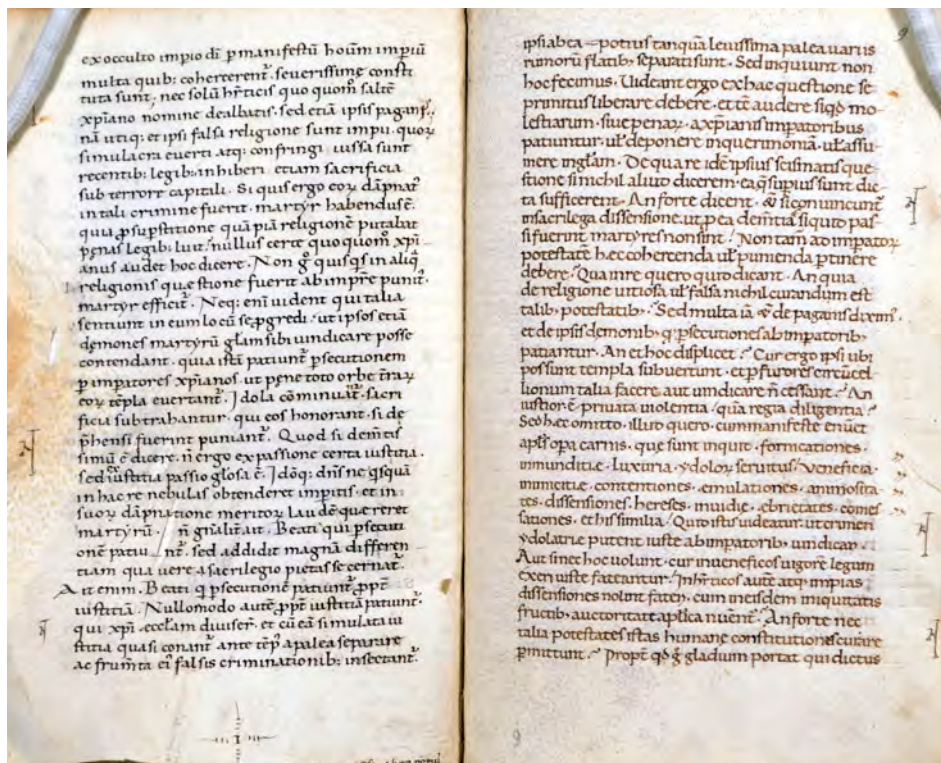 ex occulto impio di p manifestū hoīum impiū
multa quib: cohercerent᷑. seuerissime consti
tuta sunt, nec solū hr̄ticis quo quom̊ saltē
xp̄iano nomine dealbatis. sed etiā ipsis paganis.
nā utiq; et ipsi falsa religione sunt impii. quoꝝ
simulacra euerti atq: confringi iussa sunt
recentib: legib: inhiberi etiam sacrificia
sub terrore capitali. Si quis ergo eoꝝ dāpnat᷑
in tali crimine fuerit. martyr habendus ē.
quia ꝓ supstitione quā piā religione putabat
pęnas legib: luit? nullus certe quo quom̊ xp̄i
anus audet hoc dicere. Non g̊ quisq̄s in aliq̄
religionis quęstione fuerit ab imp̄re punit᷑.
martyr efficit᷑. Neq: enī uident qui talia
sentiunt in eum locū se ꝓgredi. ut ipsos etiā
dęmones martyrū gl̄am sibi uindicare posse
contendant. quia istā patiunt᷑ psecutionem
p impatores xp̄ianos. ut pęne toto orbe t̄raꝝ
eoꝝ tēpla euertant᷑. Idola cōminuant᷑. sacri
ficia subtrahantur. qui eos honorant. si de
p̄hensi fuerint puniant᷑. Quod si demtis
simū ē dicere. n̄ ergo ex passione certa iustitia.
sed ex iustitia passio gl̄osa ē. Idoq: dn̄s ne q̄squā
in hac re nebulas obtenderet impitis. et in
suoꝝ dāpnatione meritoꝝ laudē quereret
martyrū. n̄ gn̄alit᷑ ait. Beati qui psecuti
onē patiunt᷑. sed addidit magnā differen
tiam qua uere a sacrilegio pietas secernat᷑.
Ait enim. Beati q̄ psecutionē patiunt᷑ ꝓpt̄
iustitiā. Nullomodo autē ꝓpt̄ iustitiā patiunt᷑.
qui xp̄i ęccl̄am diuiser̄. et cū eā simulata iu
stitia quasi conant᷑ ante tēp᷒ a palea separare
ac frum̄ta ei᷒ falsis criminationib: insectant᷑.
9
ipsi ab ea potius tanquā leuissima palea uariis
rumorū flatib; separati sunt. Sed inquiunt non
hoc fecimus. Uideant ergo ex hac questione se
primitus liberare debere. et tc̄ audere siq̄d mo
lestiarum. siue penaꝝ a xp̄ianis impatoribus
patiuntur. ul̄ deponere in querimoniā. ul̄ assu
mere in gl̄am. De qua re idē ipsius scismatis que
stione si nichil aliut dicerem. ea q̄ supius sunt dic
ta sufficerent. An forte dicent. & si conuincunt᷑
in sacrilega dissensione. ut p ea demtia si quit pas
si fuerint martyres non sint? Non tam̄ ad impatoꝝ
potestatē hęc cohercenda ul̄ punienda ptinere
debere. Qua in re quero quit dicant. An quia
de religione uitiosa ul̄ falsa nichil curandum est
talib; potestatib;? Sed multa iā & de paganis dixim᷒.
et de ipsis demonib; q̄ psecutiones ab impatorib;
patiantur. An et hoc displicet? Cur ergo ipsi ubi
possunt templa subuertunt. et p furores circūcel
lionum talia facere. aut uindicare n̄ cessant? An
iustior ē priuata uiolentia. quā regia diligentia?
Sed hęc omitto. illut quero. cum manifeste enūcet
apl̄s opa carnis. que sunt inquit. fornicationes.
inmunditie. luxuria. ydoloꝝ seruitus. ueneficia.
inimicitie. contentiones. emulationes. animosita
tes. dissensiones. hereses. inuidię. ebrietates. comes
sationes. et his similia? Quit istis uideatur. ut crimen
ydolatrie putent iuste ab impatorib; uindicari?
Aut si nec hoc uolunt. cur in ueneficos uigorē legum
exerceri iuste fateantur? In hr̄ticos autē atq; impias
dissensiones nolint fateri. cum in eisdem iniquitatis
fructib; auctoritate aplica num̄ent᷑. An forte nec
talia potestates istas humanę constitutiones curare
pmittunt? Propt̄ qd̄ g̊ gladium portat qui dictus
9